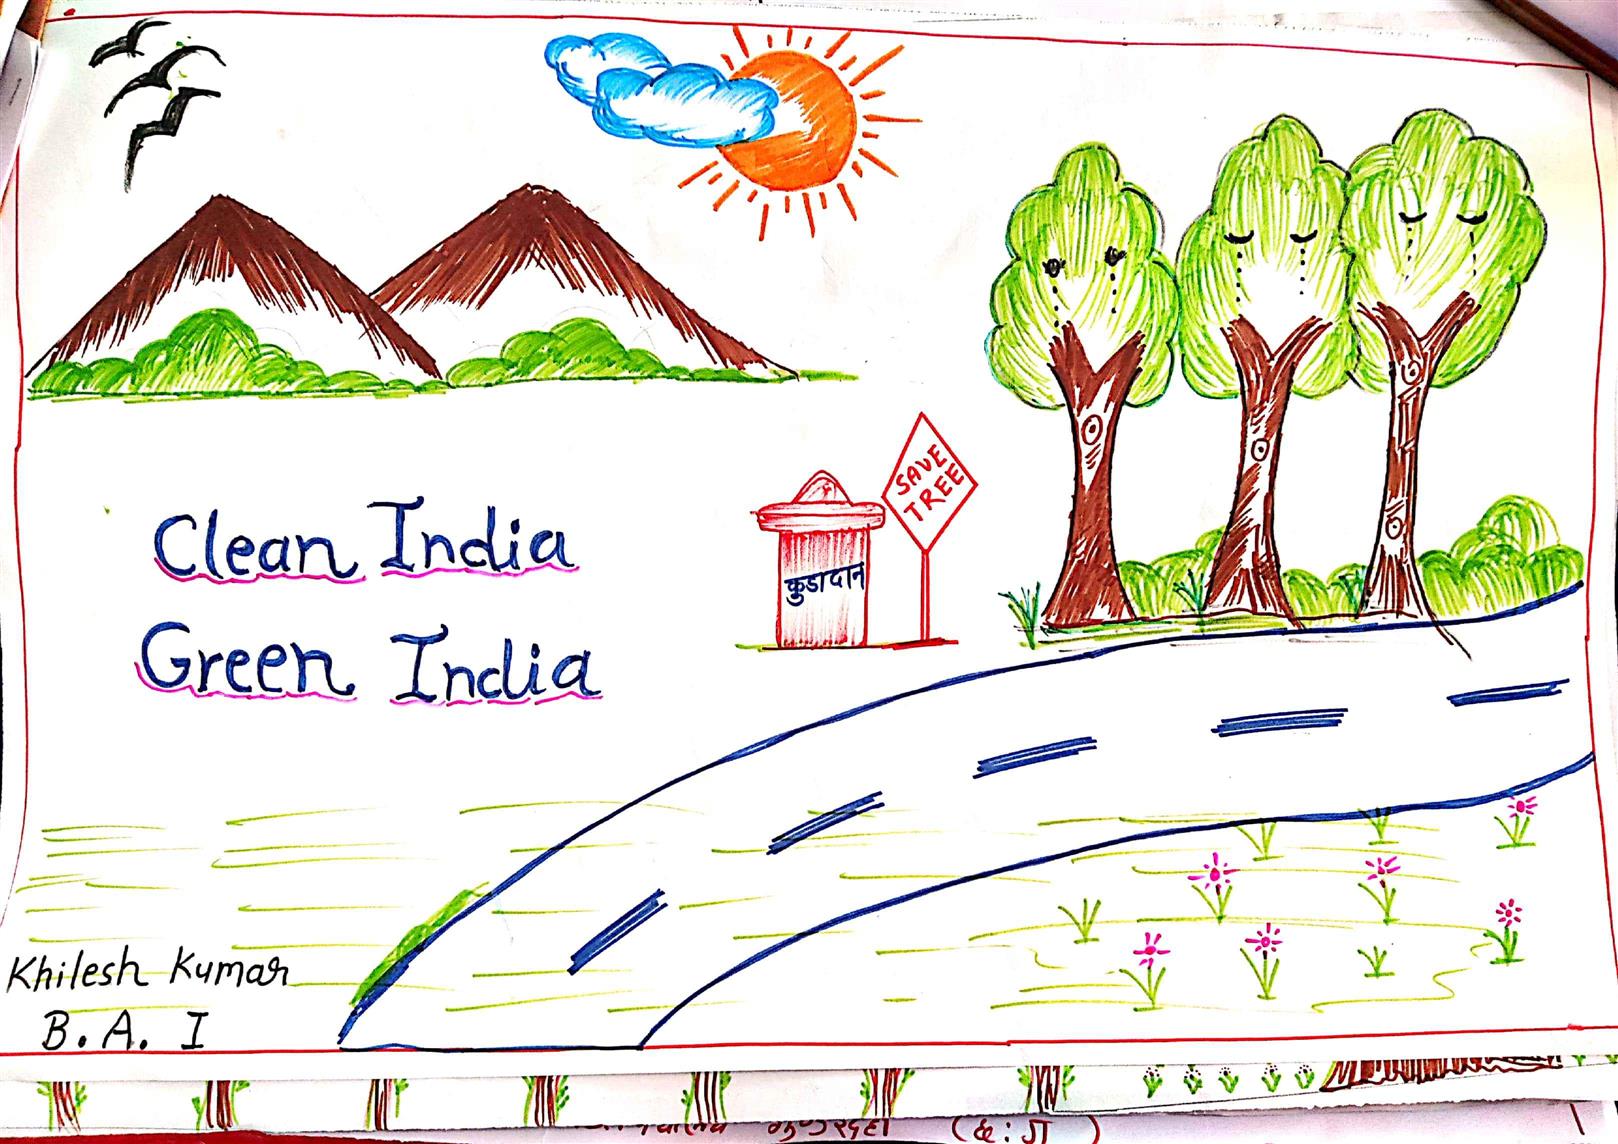 SAVE
TREE
कुडादान
Clean India
Green India
Khilesh Kumar
B. A. I